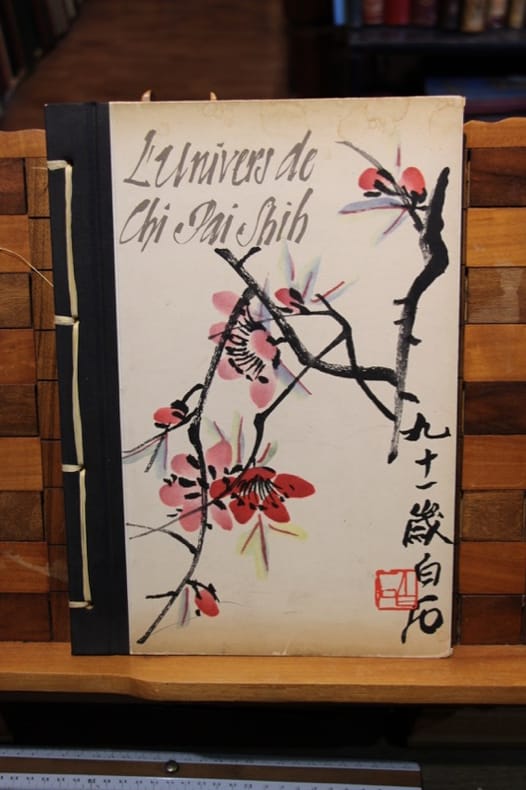 L'Univers de
Chi Pai Shih
九十一歲白石